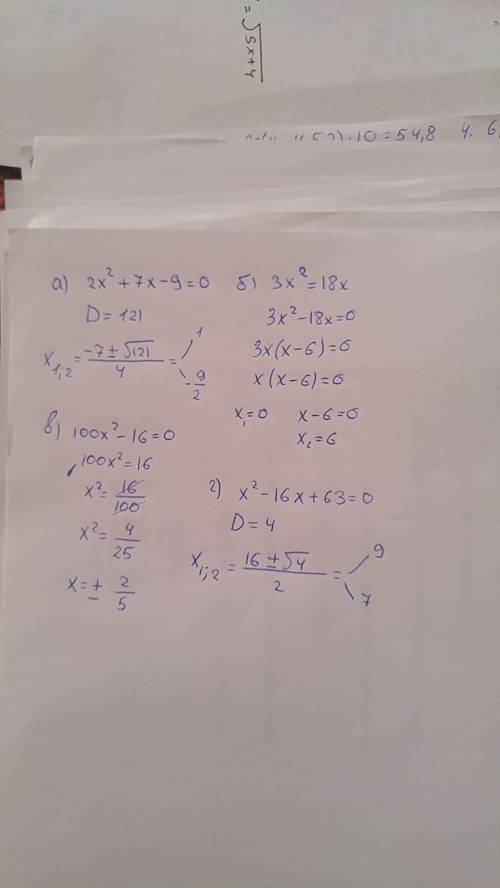 = √5x+4
) · 10 = 54,8 4. 6,
а) 2x² + 7x - 9 = 0
D = 121
x₁;₂ = (-7 ± √121)/4 = 1
-9/2
б) 3x² = 18x
3x² - 18x = 0
3x(x - 6) = 0
x(x - 6) = 0
x₁ = 0 x - 6 = 0
x₂ = 6
в) 100x² - 16 = 0
100x² = 16
x² = 16/100
x² = 4/25
x = ± 2/5
г) x² - 16x + 63 = 0
D = 4
x₁;₂ = (16 ± √4)/2 = 9
7